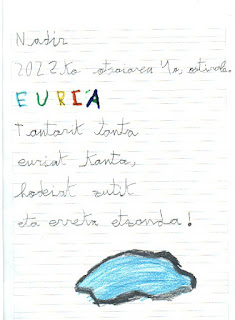 Nadir
2022.ko otsaiaren 4a, ostirala.
EURIA
Tantarik tanta
euriak kanta,
hodeiak zutik
eta erreka etzanda!